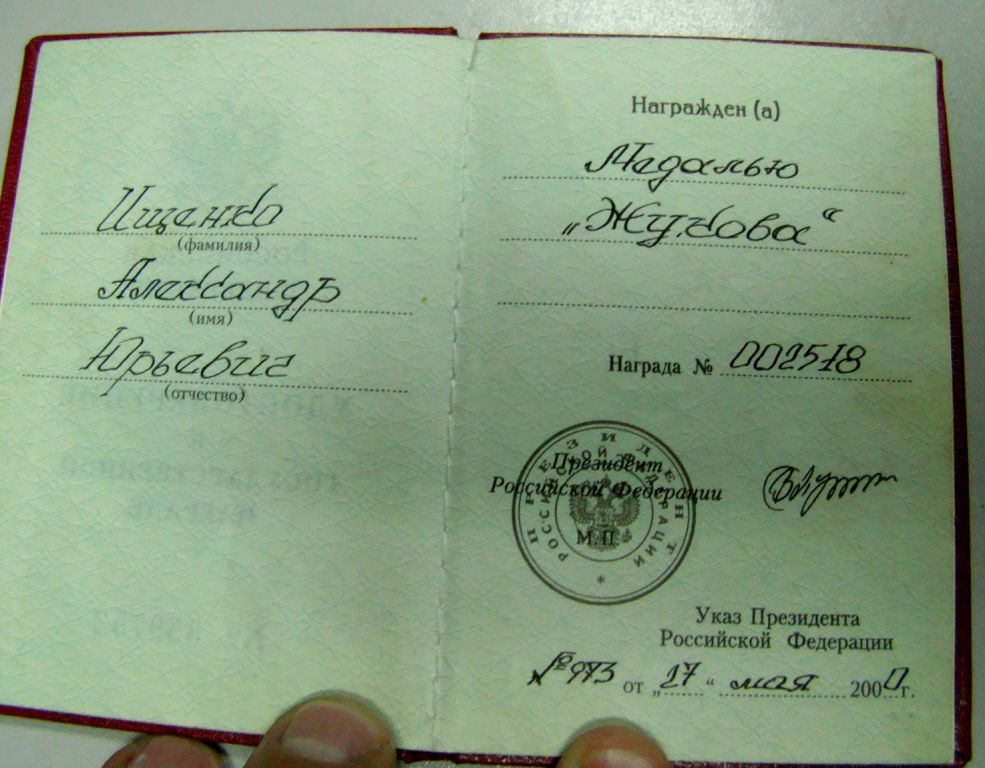 Ищенко
(фамилия)
Александр
(имя)
Юрьевич
(отчество)
Награжден (а)
Медалью
„Жукова“
Награда № 002578
ПРЕЗИДЕНТ
РОССИЙСКОЙ ФЕДЕРАЦИИ
Президент
Российской Федерации
М.П.
Указ Президента
Российской Федерации
№ 973 от „17“ мая 2000г.